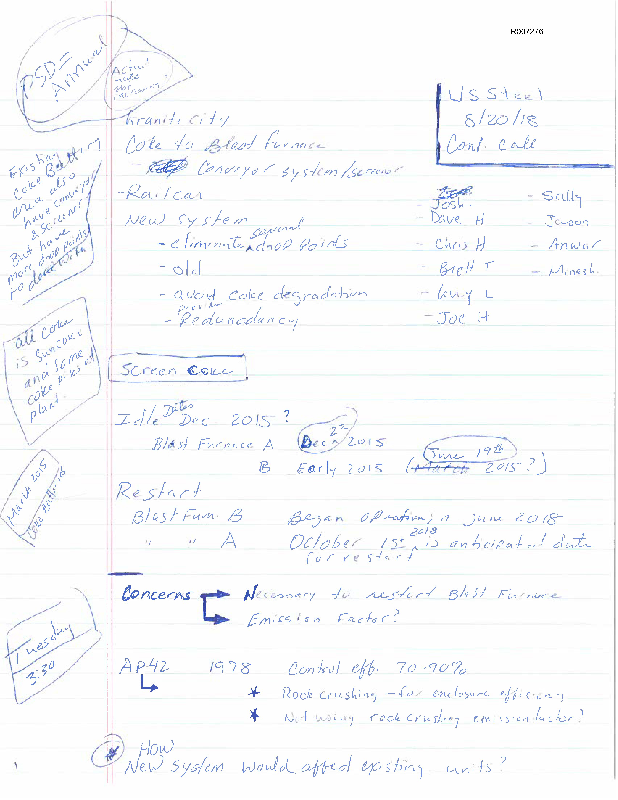 R007276
PSD = Annual
US Steel
8/20/18
Conf. Call
Granite City
Coke to Blast Furnace
Conveyor system/screener
- Railcar
New System
- eliminate several drop points
- old
- avoid coke degradation
- Redundancy
- Josh
- Dave H
- Chris H
- Brett T
- Larry L
- Joe H
- Sally
- Jason
- Anwar
- Minesh
Existing Coke Battery area also have conveyor & screener
But have more drop points to deal with
all coke is Suncoke and some coke piles at plant.
Screen Coke
Idle Dates Dec 2015?
Blast Furnace A Dec 22 2015
B Early 2015 (March June 19th 2015?)
March 2015
Restart
Blast Furn. B Began operations in June 2018
" " A October 1st 2018 is anticipated date for restart
Concerns Necessary to restart Blast Furnace
Emission Factor?
Tuesday
3:30
AP42 1978 Control eff. 70-90%
* Rock crushing - for enclosure efficiency
* Not using rock crushing emission factor?
* How
New System would affect existing units?